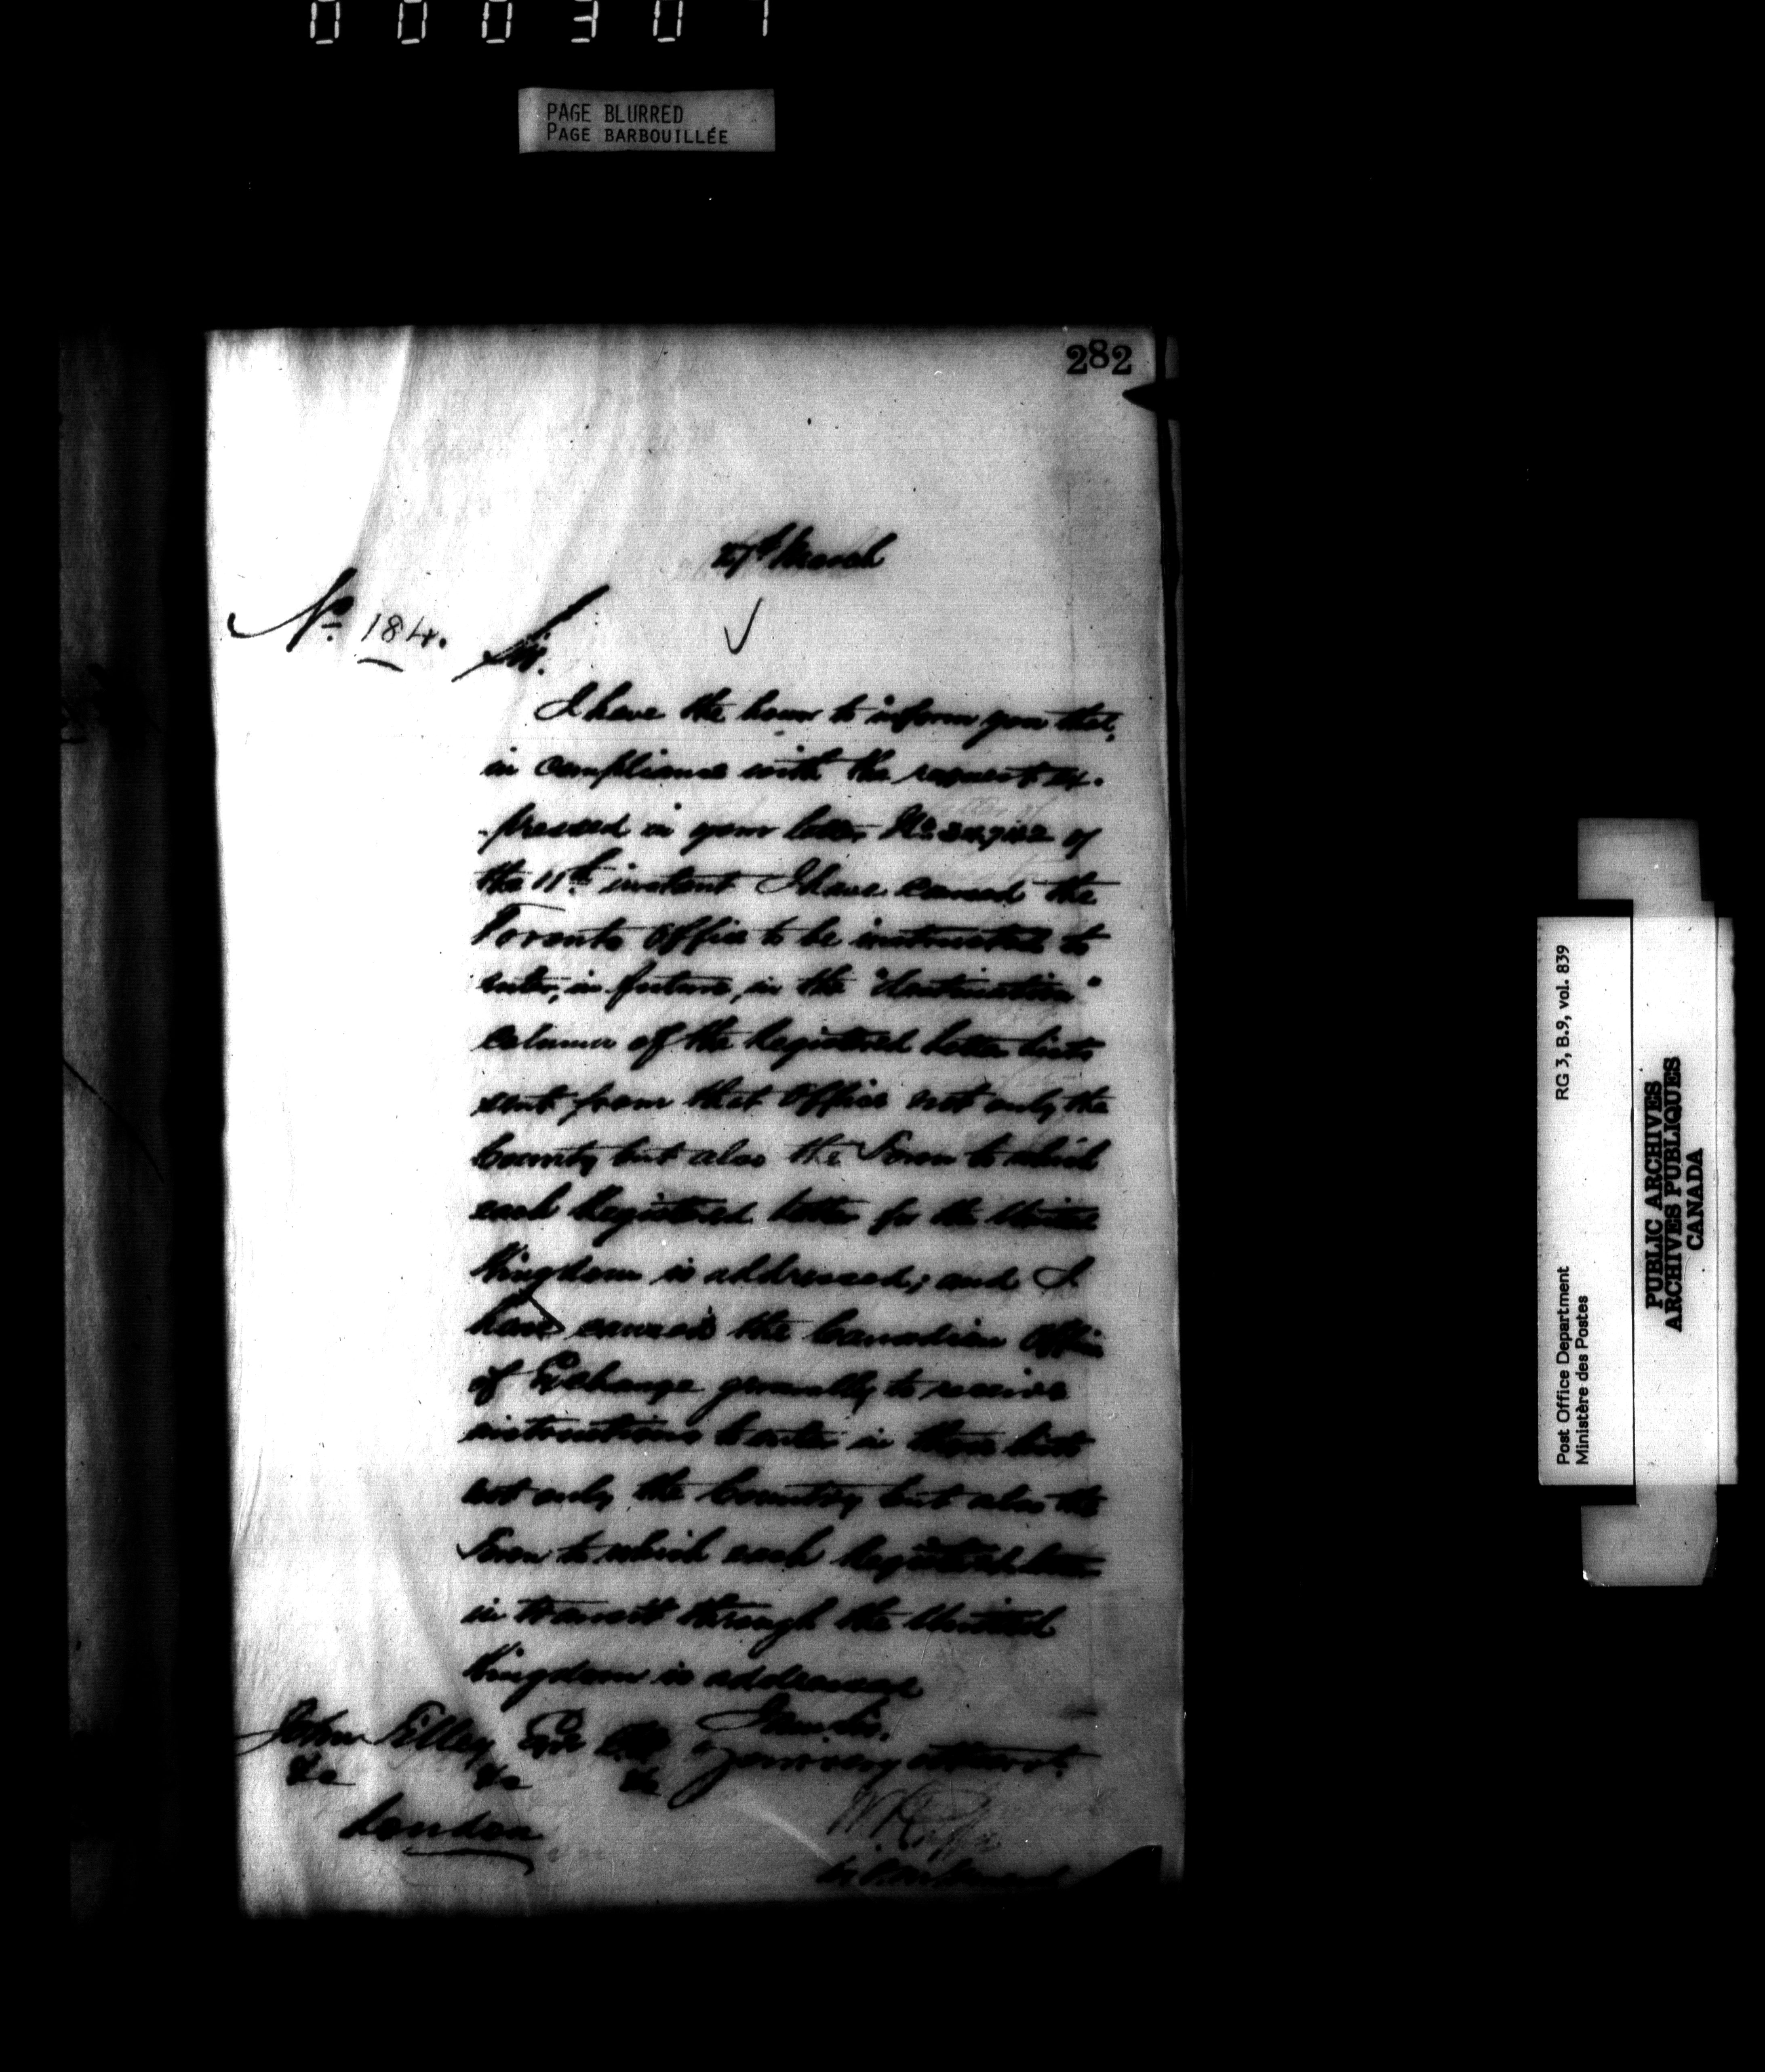 000307
PAGE BLURRED
PAGE BARBOUILLÉE
282
27th March
No. 184.
Sir.
I have the honor to inform you that,
in compliance with the request ex-
-pressed in your letter No. of
the 11th instant I have caused the
Toronto Office to be instructed to
enter, in future, in the "destination"
column of the Registered Letter Lists
sent from that Office not only the
County but also the Town to which
each Registered letter for the United
Kingdom is addressed; and I
have caused the Canadian Offices
of Exchange generally to receive
instructions to enter in those lists
not only the Country but also the
Town to which each Registered letter
in transit through the United
Kingdom is addressed
I am Sir,
Your very obt servt.
John Tilley Esq C.B.
&c &c &c
London
RG 3, B.9, vol. 839
Post Office Department
Ministère des Postes
PUBLIC ARCHIVES
ARCHIVES PUBLIQUES
CANADA